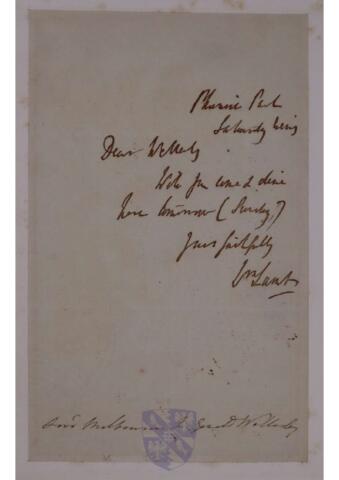 Phoenix Park
Saturday
Dear Wellesley
Will you come & dine
here tomorrow (Sunday?)
Yours faithfully
Wm Lamb
Lord Melbourne to Gerald Wellesley